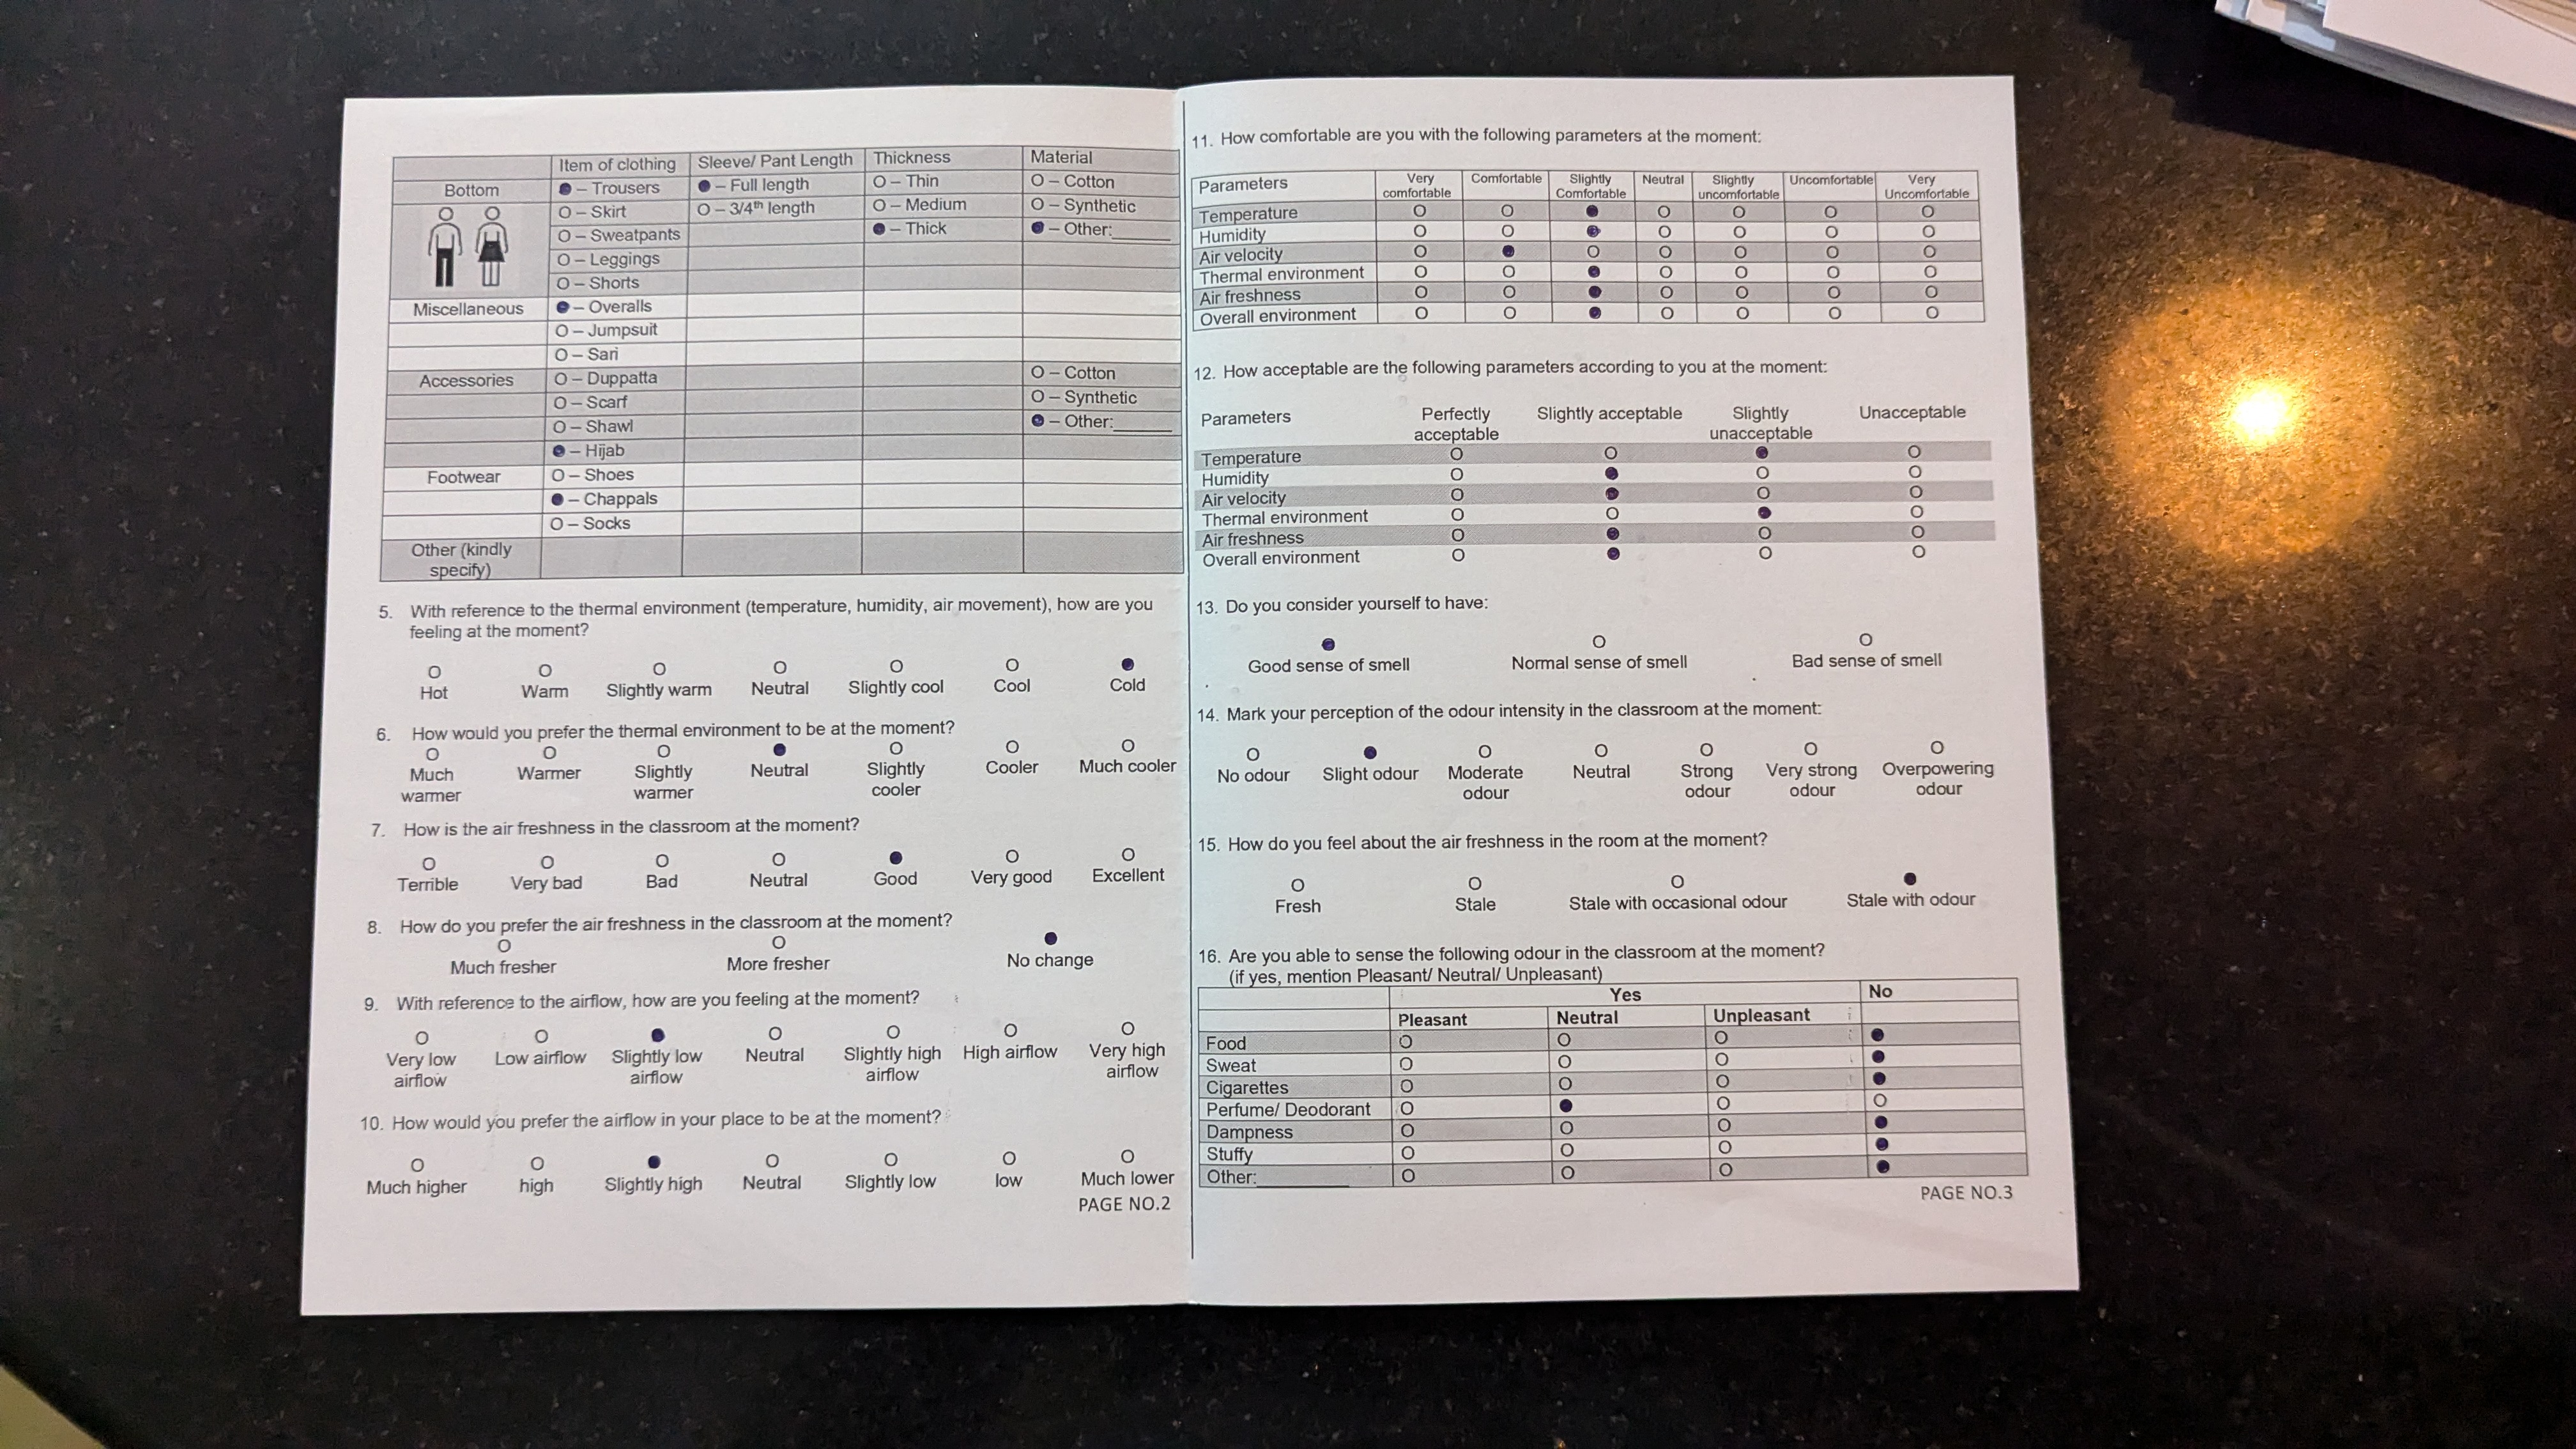 Item of clothing Sleeve/ Pant Length Thickness Material
Bottom ● – Trousers ● – Full length O – Thin O – Cotton
O – Skirt O – 3/4th length O – Medium O – Synthetic
O – Sweatpants ● – Thick ● – Other:______
O – Leggings
O – Shorts
Miscellaneous ● – Overalls
O – Jumpsuit
O – Sari
Accessories O – Duppatta O – Cotton
O – Scarf O – Synthetic
O – Shawl ● – Other:______
● – Hijab
Footwear O – Shoes
● – Chappals
O – Socks
Other (kindly
specify)
5. With reference to the thermal environment (temperature, humidity, air movement), how are you
feeling at the moment?
O O O O O O ●
Hot Warm Slightly warm Neutral Slightly cool Cool Cold
6. How would you prefer the thermal environment to be at the moment?
O O O ● O O O
Much Warmer Slightly Neutral Slightly Cooler Much cooler
warmer warmer cooler
7. How is the air freshness in the classroom at the moment?
O O O O ● O O
Terrible Very bad Bad Neutral Good Very good Excellent
8. How do you prefer the air freshness in the classroom at the moment?
O O ●
Much fresher More fresher No change
9. With reference to the airflow, how are you feeling at the moment?
O O ● O O O O
Very low Low airflow Slightly low Neutral Slightly high High airflow Very high
airflow airflow airflow airflow
10. How would you prefer the airflow in your place to be at the moment?
O O ● O O O O
Much higher high Slightly high Neutral Slightly low low Much lower
PAGE NO.2
11. How comfortable are you with the following parameters at the moment:
Parameters Very Comfortable Slightly Neutral Slightly Uncomfortable Very
comfortable Comfortable uncomfortable Uncomfortable
Temperature O O ● O O O O
Humidity O O ● O O O O
Air velocity O ● O O O O O
Thermal environment O O ● O O O O
Air freshness O O ● O O O O
Overall environment O O ● O O O O
12. How acceptable are the following parameters according to you at the moment:
Parameters Perfectly Slightly acceptable Slightly Unacceptable
acceptable unacceptable
Temperature O O ● O
Humidity O ● O O
Air velocity O ● O O
Thermal environment O O ● O
Air freshness O ● O O
Overall environment O ● O O
13. Do you consider yourself to have:
● O O
Good sense of smell Normal sense of smell Bad sense of smell
14. Mark your perception of the odour intensity in the classroom at the moment:
O ● O O O O O
No odour Slight odour Moderate Neutral Strong Very strong Overpowering
odour odour odour odour
15. How do you feel about the air freshness in the room at the moment?
O O O ●
Fresh Stale Stale with occasional odour Stale with odour
16. Are you able to sense the following odour in the classroom at the moment?
(if yes, mention Pleasant/ Neutral/ Unpleasant)
Yes No
Pleasant Neutral Unpleasant
Food O O O ●
Sweat O O O ●
Cigarettes O O O ●
Perfume/ Deodorant O ● O O
Dampness O O O ●
Stuffy O O O ●
Other:__________ O O O ●
PAGE NO.3